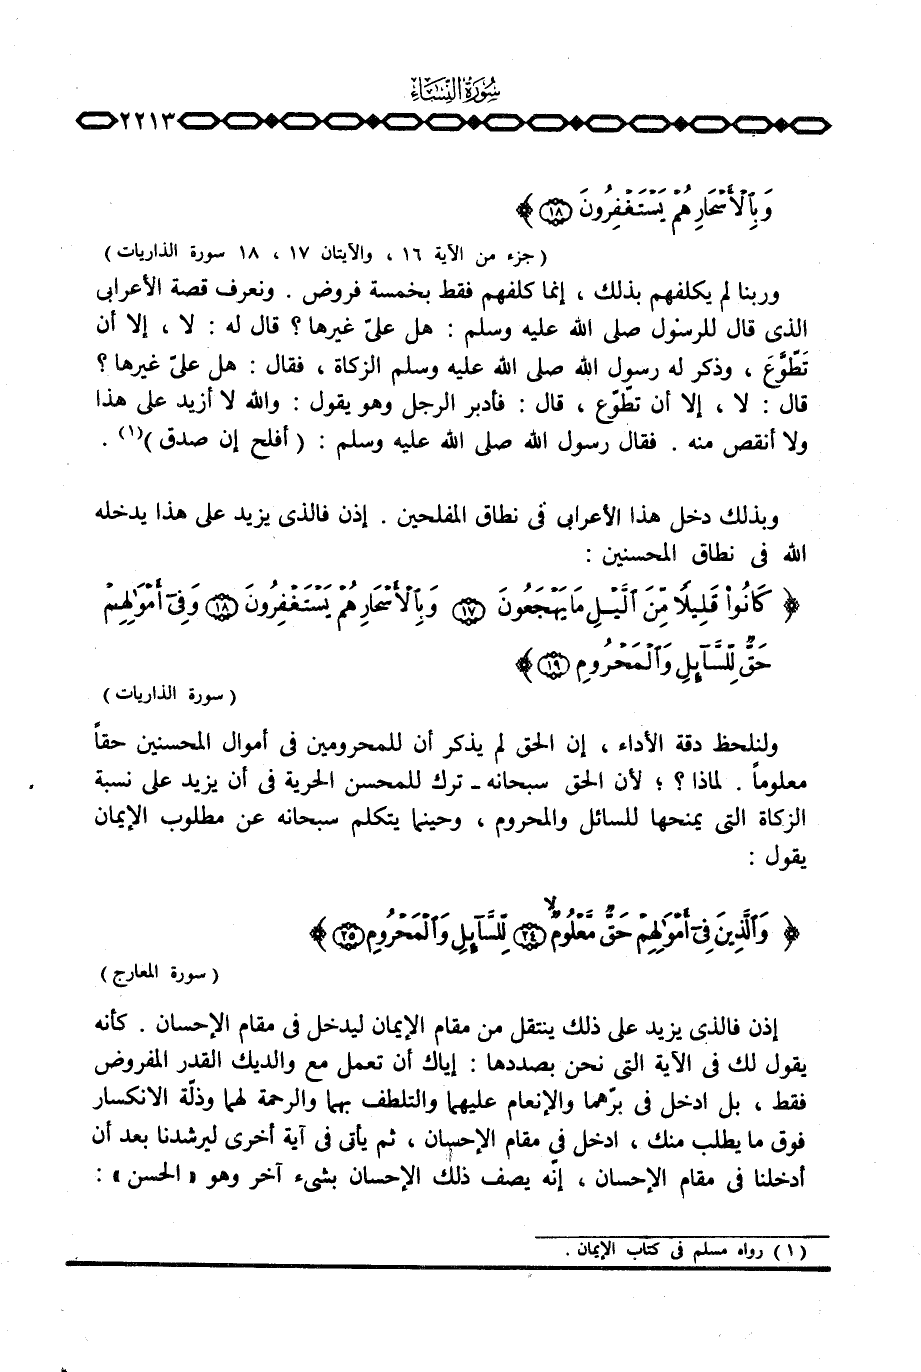 سُورَةُ النِّسَاءِ
٢٢١٣
وَبِالْأَسْحَارِ هُمْ يَسْتَغْفِرُونَ ۝١٨ ﴾
( جزء من الآية ١٦ ، والآيتان ١٧ ، ١٨ سورة الذاريات )
وربنا لم يكلفهم بذلك ، إنما كلفهم فقط بخمسة فروض . ونعرف قصة الأعرابى
الذى قال للرسول صلى الله عليه وسلم : هل علىّ غيرها ؟ قال له : لا ، إلا أن
تَطَّوَّعَ ، وذكر له رسول الله صلى الله عليه وسلم الزكاة ، فقال : هل علىّ غيرها ؟
قال : لا ، إلا أن تطّوّع ، قال : فأدبر الرجل وهو يقول : والله لا أزيد على هذا
ولا أنقص منه . فقال رسول الله صلى الله عليه وسلم : ( أفلح إن صدق )(١) .
وبذلك دخل هذا الأعرابى فى نطاق المفلحين . إذن فالذى يزيد على هذا يدخله
الله فى نطاق المحسنين :
﴿ كَانُوا۟ قَلِيلًا مِّنَ ٱلَّيْلِ مَا يَهْجَعُونَ ۝١٧ وَبِٱلْأَسْحَارِ هُمْ يَسْتَغْفِرُونَ ۝١٨ وَفِىٓ أَمْوَٰلِهِمْ
حَقٌّ لِّلسَّآئِلِ وَٱلْمَحْرُومِ ۝١٩ ﴾
( سورة الذاريات )
ولنلحظ دقة الأداء ، إن الحق لم يذكر أن للمحرومين فى أموال المحسنين حقاً
معلوماً . لماذا ؟ ؛ لأن الحق سبحانه ـ ترك للمحسن الحرية فى أن يزيد على نسبة
الزكاة التى يمنحها للسائل والمحروم ، وحينما يتكلم سبحانه عن مطلوب الإيمان
يقول :
﴿ وَٱلَّذِينَ فِىٓ أَمْوَٰلِهِمْ حَقٌّ مَّعْلُومٌ ۝٢٤ لِّلسَّآئِلِ وَٱلْمَحْرُومِ ۝٢٥ ﴾
( سورة المعارج )
إذن فالذى يزيد على ذلك ينتقل من مقام الإيمان ليدخل فى مقام الإحسان . كأنه
يقول لك فى الآية التى نحن بصددها : إياك أن تعمل مع والديك القدر المفروض
فقط ، بل ادخل فى برّهما والإنعام عليهما والتلطف بهما والرحمة لهما وذلّة الانكسار
فوق ما يطلب منك ، ادخل فى مقام الإحسان ، ثم يأتى فى آية أخرى ليرشدنا بعد أن
أدخلنا فى مقام الإحسان ، إنّه يصف ذلك الإحسان بشىء آخر وهو « الحسن » :
( ١ ) رواه مسلم فى كتاب الإيمان .